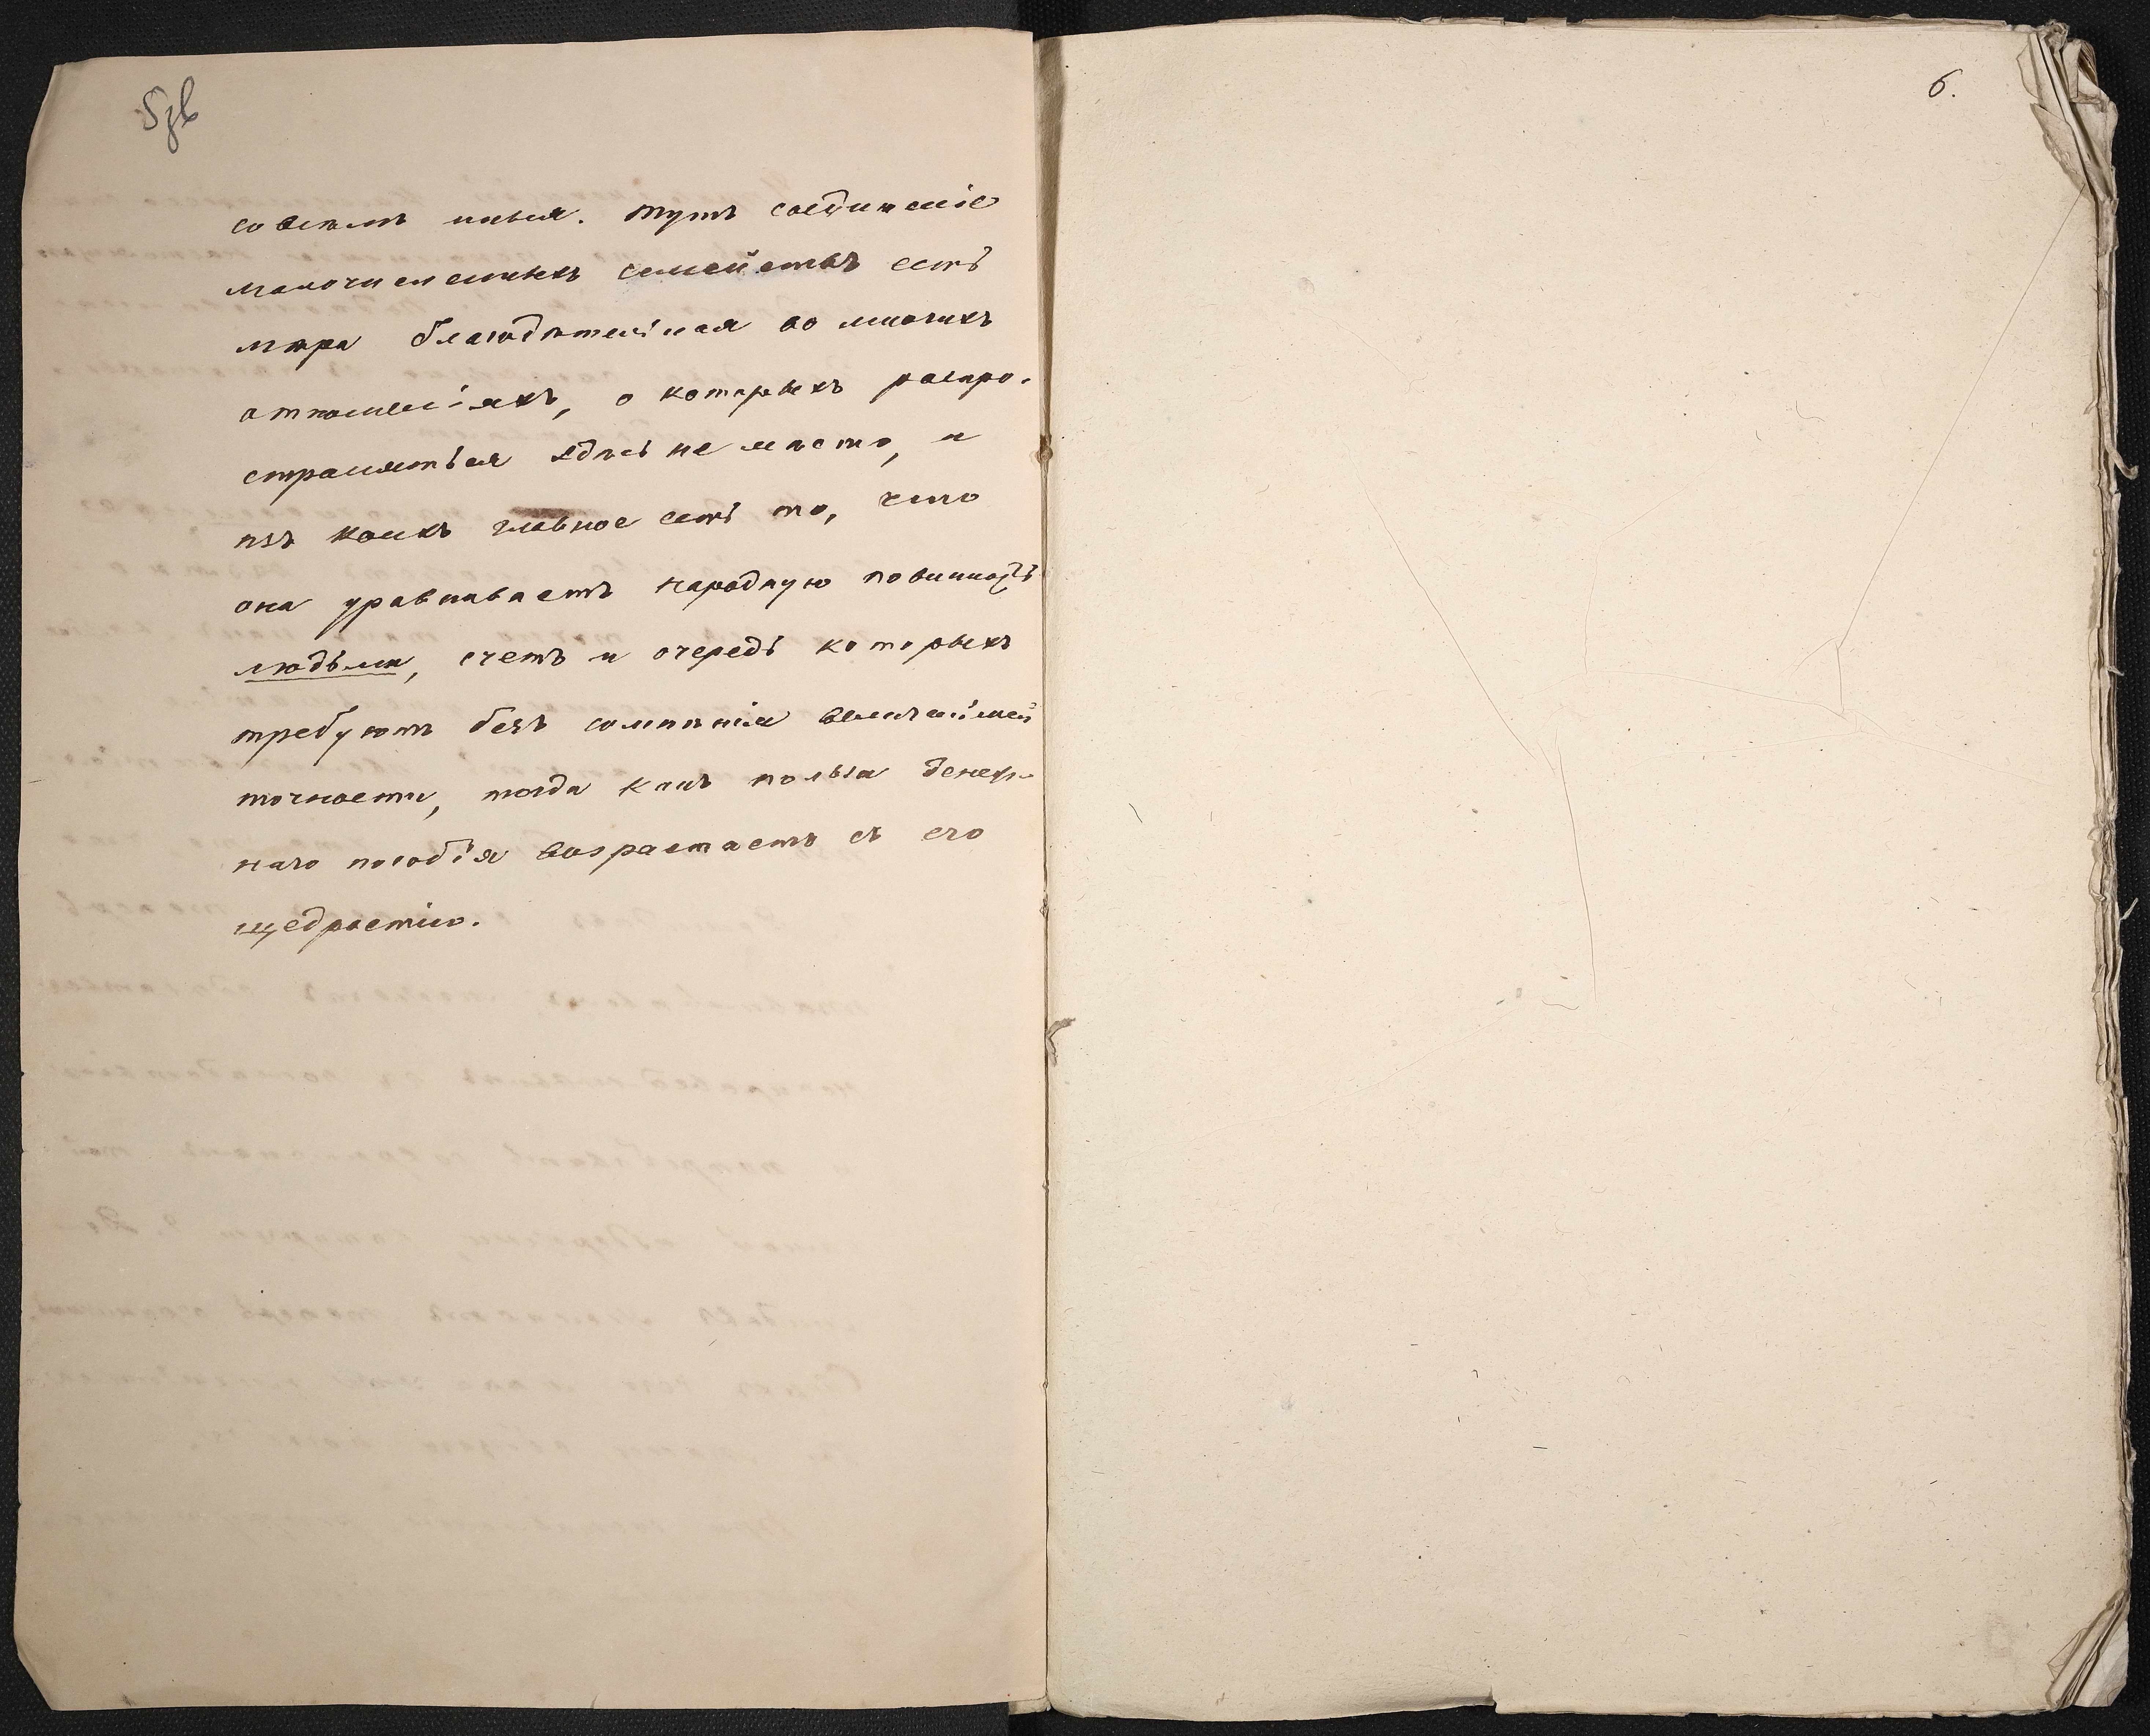 совсѣмъ иныя. Тутъ соединеніе
малочисленныхъ семействъ есть
мѣра благодѣтельная во многихъ
отношеніяхъ, о которыхъ распро-
страняться здѣсь не мѣсто, и
изъ коихъ главное есть то, что
она уравниваетъ народную повинность
людьми, счетъ и очередь которыхъ
требуютъ безъ сомнѣнія величайшей
точности, тогда какъ польза денеж-
наго пособія возрастаетъ съ его
щедростію.
6.